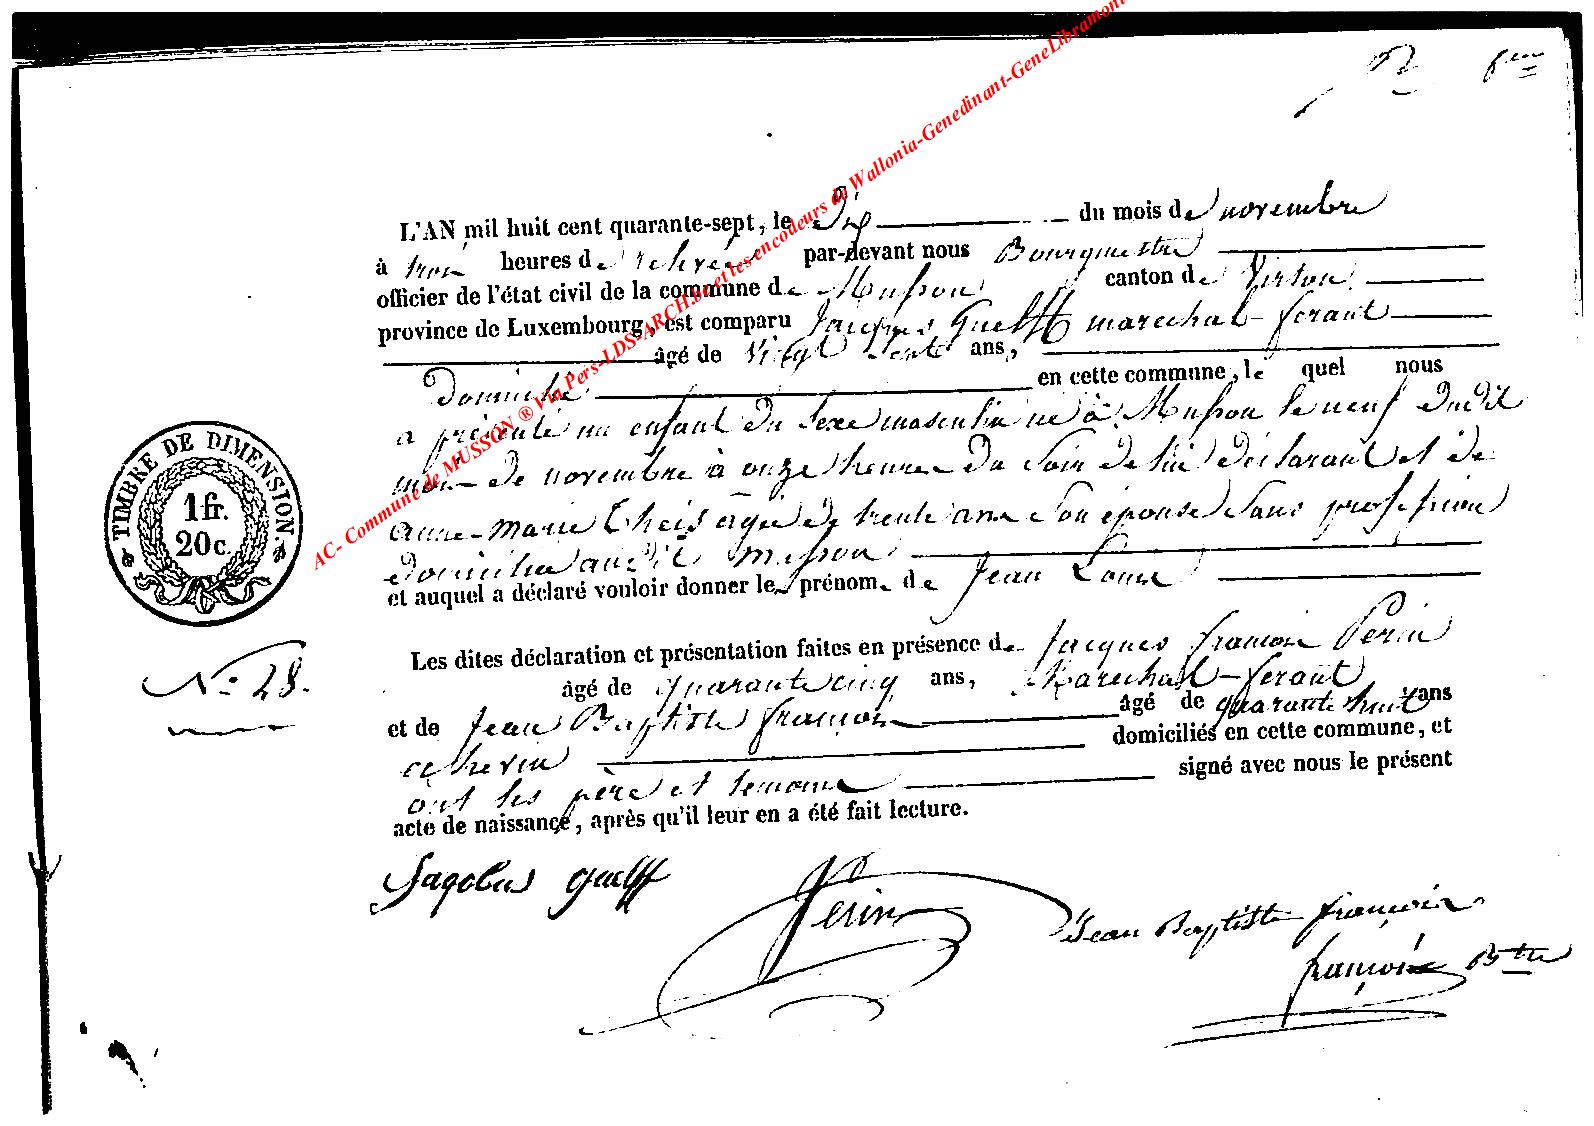 L'AN mil huit cent quarante-sept, le Dix du mois de novembre
à trois heures de relevée par-devant nous Bourguemestre
officier de l'état civil de la commune de Musson canton de Virton
province de Luxembourg, est comparu Jacques Guelff marechal-ferant
âgé de Vingt Sept ans,
Domicilié en cette commune, le quel nous
a présenté un enfant du Sexe masculin né à Musson le neuf dudit
mois de novembre à onze heures du Soir de lui déclarant et de
anne-marie Theis agée de trente ans Son épouse Sans profession
domiciliée audit Musson
et auquel a déclaré vouloir donner les prénoms de Jean Louis
Les dites déclaration et présentation faites en présence de Jacques françois Perin
âgé de quarante cinq ans, Marechal-ferant
et de Jean Baptiste françois âgé de quarante huit ans
domiciliés en cette commune, et
ont les père et temoins signé avec nous le présent
acte de naissance, après qu'il leur en a été fait lecture.
TIMBRE DE DIMENSION.
1 fr.
20 c.
N° 28.
Jagobus Guelff
Perin
Jean Baptiste françois
françois Btte
AC- Commune de MUSSON ® Via Pers-LDS-ARCH.be et les encodeurs de Wallonia-Genedinant-GeneLibramont